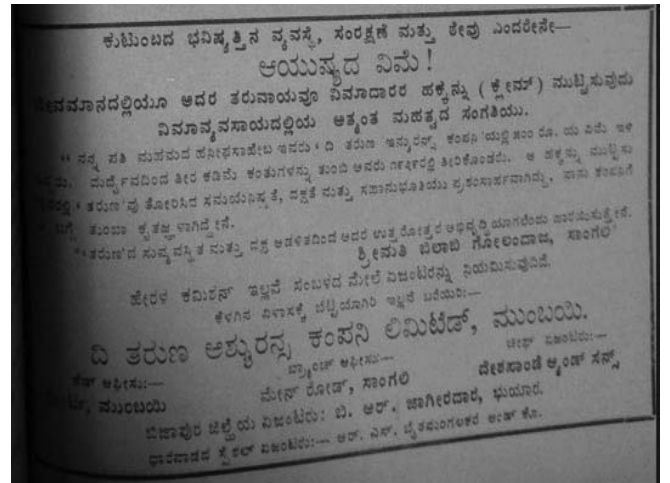 ಕುಟುಂಬದ ಭವಿಷ್ಯತ್ತಿನ ವ್ಯವಸ್ಥೆ, ಸಂರಕ್ಷಣೆ ಮತ್ತು ಠೇವು ಎಂದರೇನೇ—
ಆಯುಷ್ಯದ ವಿಮೆ!
ಜೀವಮಾನದಲ್ಲಿಯೂ ಅದರ ತರುವಾಯವೂ ವಿಮಾದಾರರ ಹಕ್ಕನ್ನು (ಕ್ಲೇಮ್) ಮುಟ್ಟಿಸುವುದು
ವಿಮಾವ್ಯವಸಾಯದಲ್ಲಿಯ ಅತ್ಯಂತ ಮಹತ್ವದ ಸಂಗತಿಯು.
“ನನ್ನ ಪತಿ ಮಹಮದ ಹನೀಫಸಾಹೇಬ ಇವರು ‘ದಿ ತರುಣ ಇನ್ಶುರನ್ಸ್ ಕಂಪನಿ’ಯಲ್ಲಿ ರೂ. ಯ ವಿಮೆ ಇಳಿ
ದುರ್ದೈವದಿಂದ ತೀರ ಕಡಿಮೆ ಕಂತುಗಳನ್ನು ತುಂಬಿ ಅವರು ೧೯೩೯ರಲ್ಲಿ ತೀರಿಕೊಂಡರು. ಆ ಹಕ್ಕನ್ನು ಮುಟ್ಟಿಸು
‘ತರುಣ’ವು ತೋರಿಸಿದ ಸಮಯನಿಷ್ಠತೆ, ದಕ್ಷತೆ ಮತ್ತು ಸಹಾನುಭೂತಿಯು ಪ್ರಶಂಸಾರ್ಹವಾಗಿದ್ದು, ನಾನು ಕಂಪನಿಗೆ
ಬಗ್ಗೆ ತುಂಬಾ ಕೃತಜ್ಞಳಾಗಿದ್ದೇನೆ.
“‘ತರುಣ’ದ ಸುವ್ಯವಸ್ಥಿತ ಮತ್ತು ದಕ್ಷ ಆಡಳಿತದಿಂದ ಅದರ ಉತ್ತರೋತ್ತರ ಅಭಿವೃದ್ಧಿಯಾಗಲೆಂದು ಹಾರಯಿಸುತ್ತೇನೆ.
ಶ್ರೀಮತಿ ಬಿಲಾಬಿ ಗೋಲಂದಾಜ, ಸಾಂಗಲಿ
ಹೇರಳ ಕಮಿಶನ್ ಇಲ್ಲವೆ ಸಂಬಳದ ಮೇಲೆ ಏಜಂಟರನ್ನು ನಿಯಮಿಸುವುದಿದೆ.
ಕೆಳಗಿನ ವಿಳಾಸಕ್ಕೆ ಬೆಟ್ಟಿಯಾಗಿರಿ ಇಲ್ಲವೆ ಬರೆಯಿರಿ:—
ದಿ ತರುಣ ಅಶ್ಶುರನ್ಸ ಕಂಪನಿ ಲಿಮಿಟೆಡ್, ಮುಂಬಯಿ.
ಹೆಡ್ ಆಫೀಸು:— ಬ್ರ್ಯಾಂಚ್ ಆಫೀಸು:— ಚೀಫ್ ಏಜಂಟರು:—
ಮುಂಬಯಿ ಮೇನ್ ರೋಡ್, ಸಾಂಗಲಿ ದೇಶಪಾಂಡೆ ಆ್ಯಂಡ್ ಸನ್ಸ್
ಬಿಜಾಪುರ ಜಿಲ್ಹೆಯ ಏಜಂಟರು: ಬಿ. ಆರ್. ಜಾಗೀರದಾರ, ಭುಯಾರ.
ಧಾರವಾಡದ ಸ್ಪೆಶಲ್ ಏಜಂಟರು:— ಆರ್. ಎಸ್. ಬೈತಮಂಗಲಕರ ಆಂಡ್ ಕೊ.